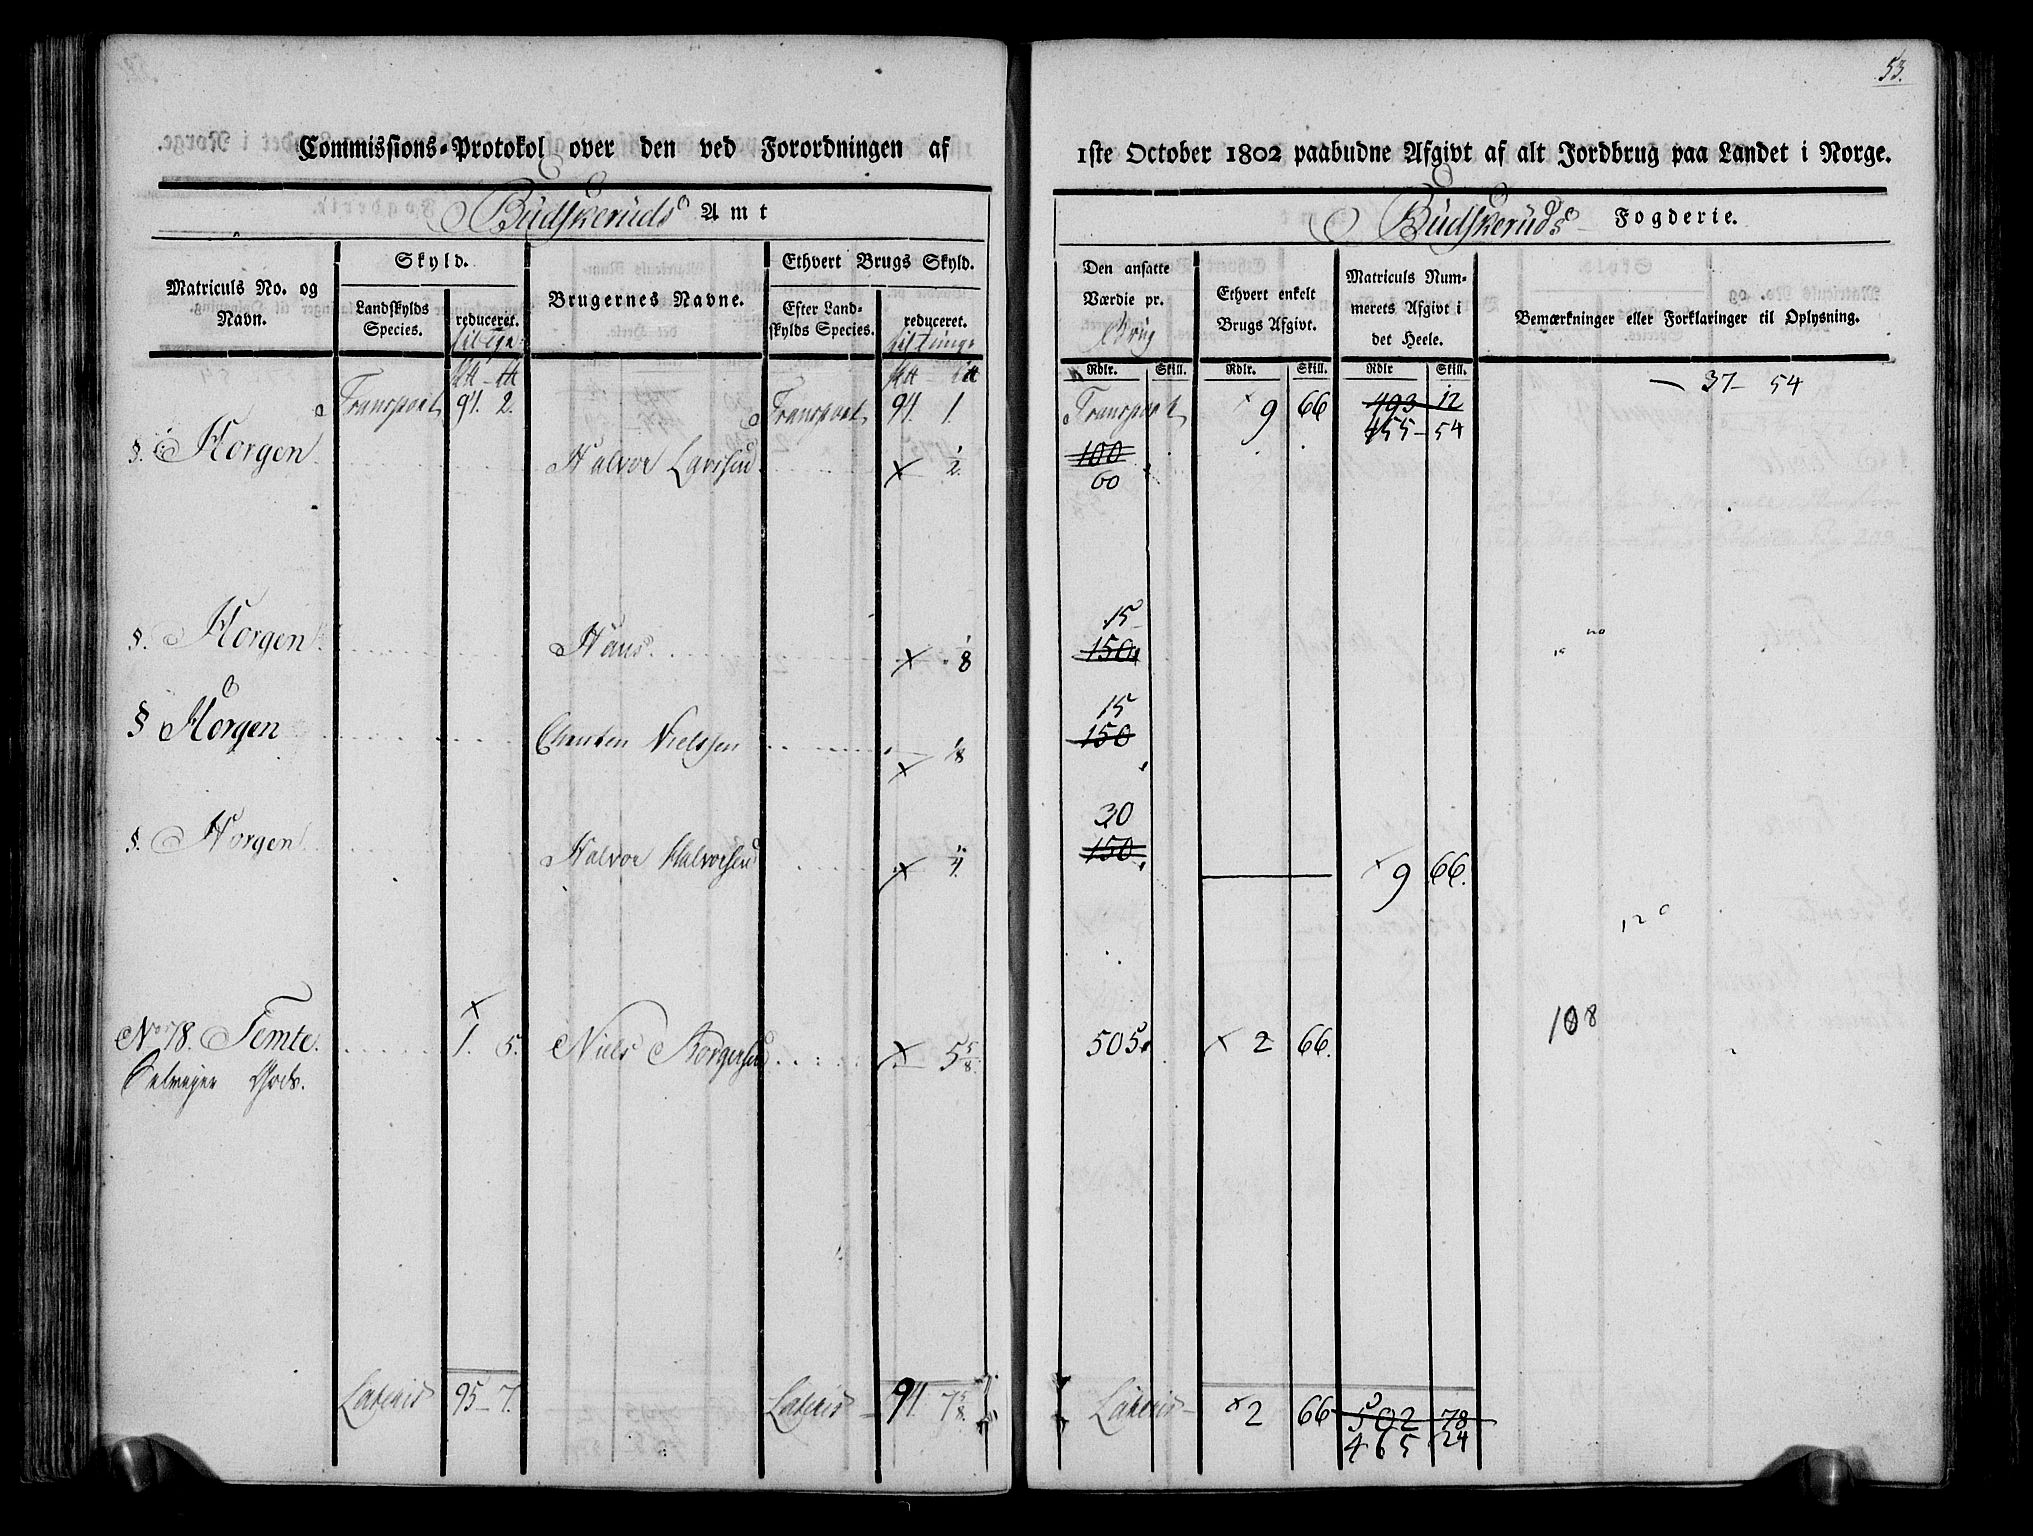 53.
Commissions-Protokol over den ved Forordningen af 1ste October 1802 paabudne Afgivt af alt Jordbrug paa Landet i Norge.
Budskeruds Amt
Budskeruds Fogderie.
Matriculs No. og Navn.
Skyld.
Landskylds Species.
reduceret.
Brugernes Navne.
Ethvert Brugs Skyld.
Efter Landskylds Species.
reduceret.
Den ansatte Værdie pr. Brug
Ethvert enkelt Brugs Afgivt.
Matriculs Nummerets Afgivt i det Heele.
Bemærkninger eller Forklaringer til Oplysning.
Rdlr. Skill. Rdlr. Skill. Rdlr Skill.
Transport 94. 2. Transport 94. 1. Transport × 9 66 493 12 — 37 - 54
455 - 54
§. Horgen Halvor Larssen × 1/2. 100
60
§. Horgen Hans × 1/8 15
150
§ Horgen Christen Nielssen × 1/8 15
150
§. Horgen Halvor Halvorsen × 1/4 30
150 × 9 66.
120
No 78. Temte. × 1. 5. Niels Borgersen × 5 5/8. 505 × 2 66. 108
Gods.
Lateris 95 - 7. Lateris 94. 7 5/8. Lateris × 2 66 502 78
465 24